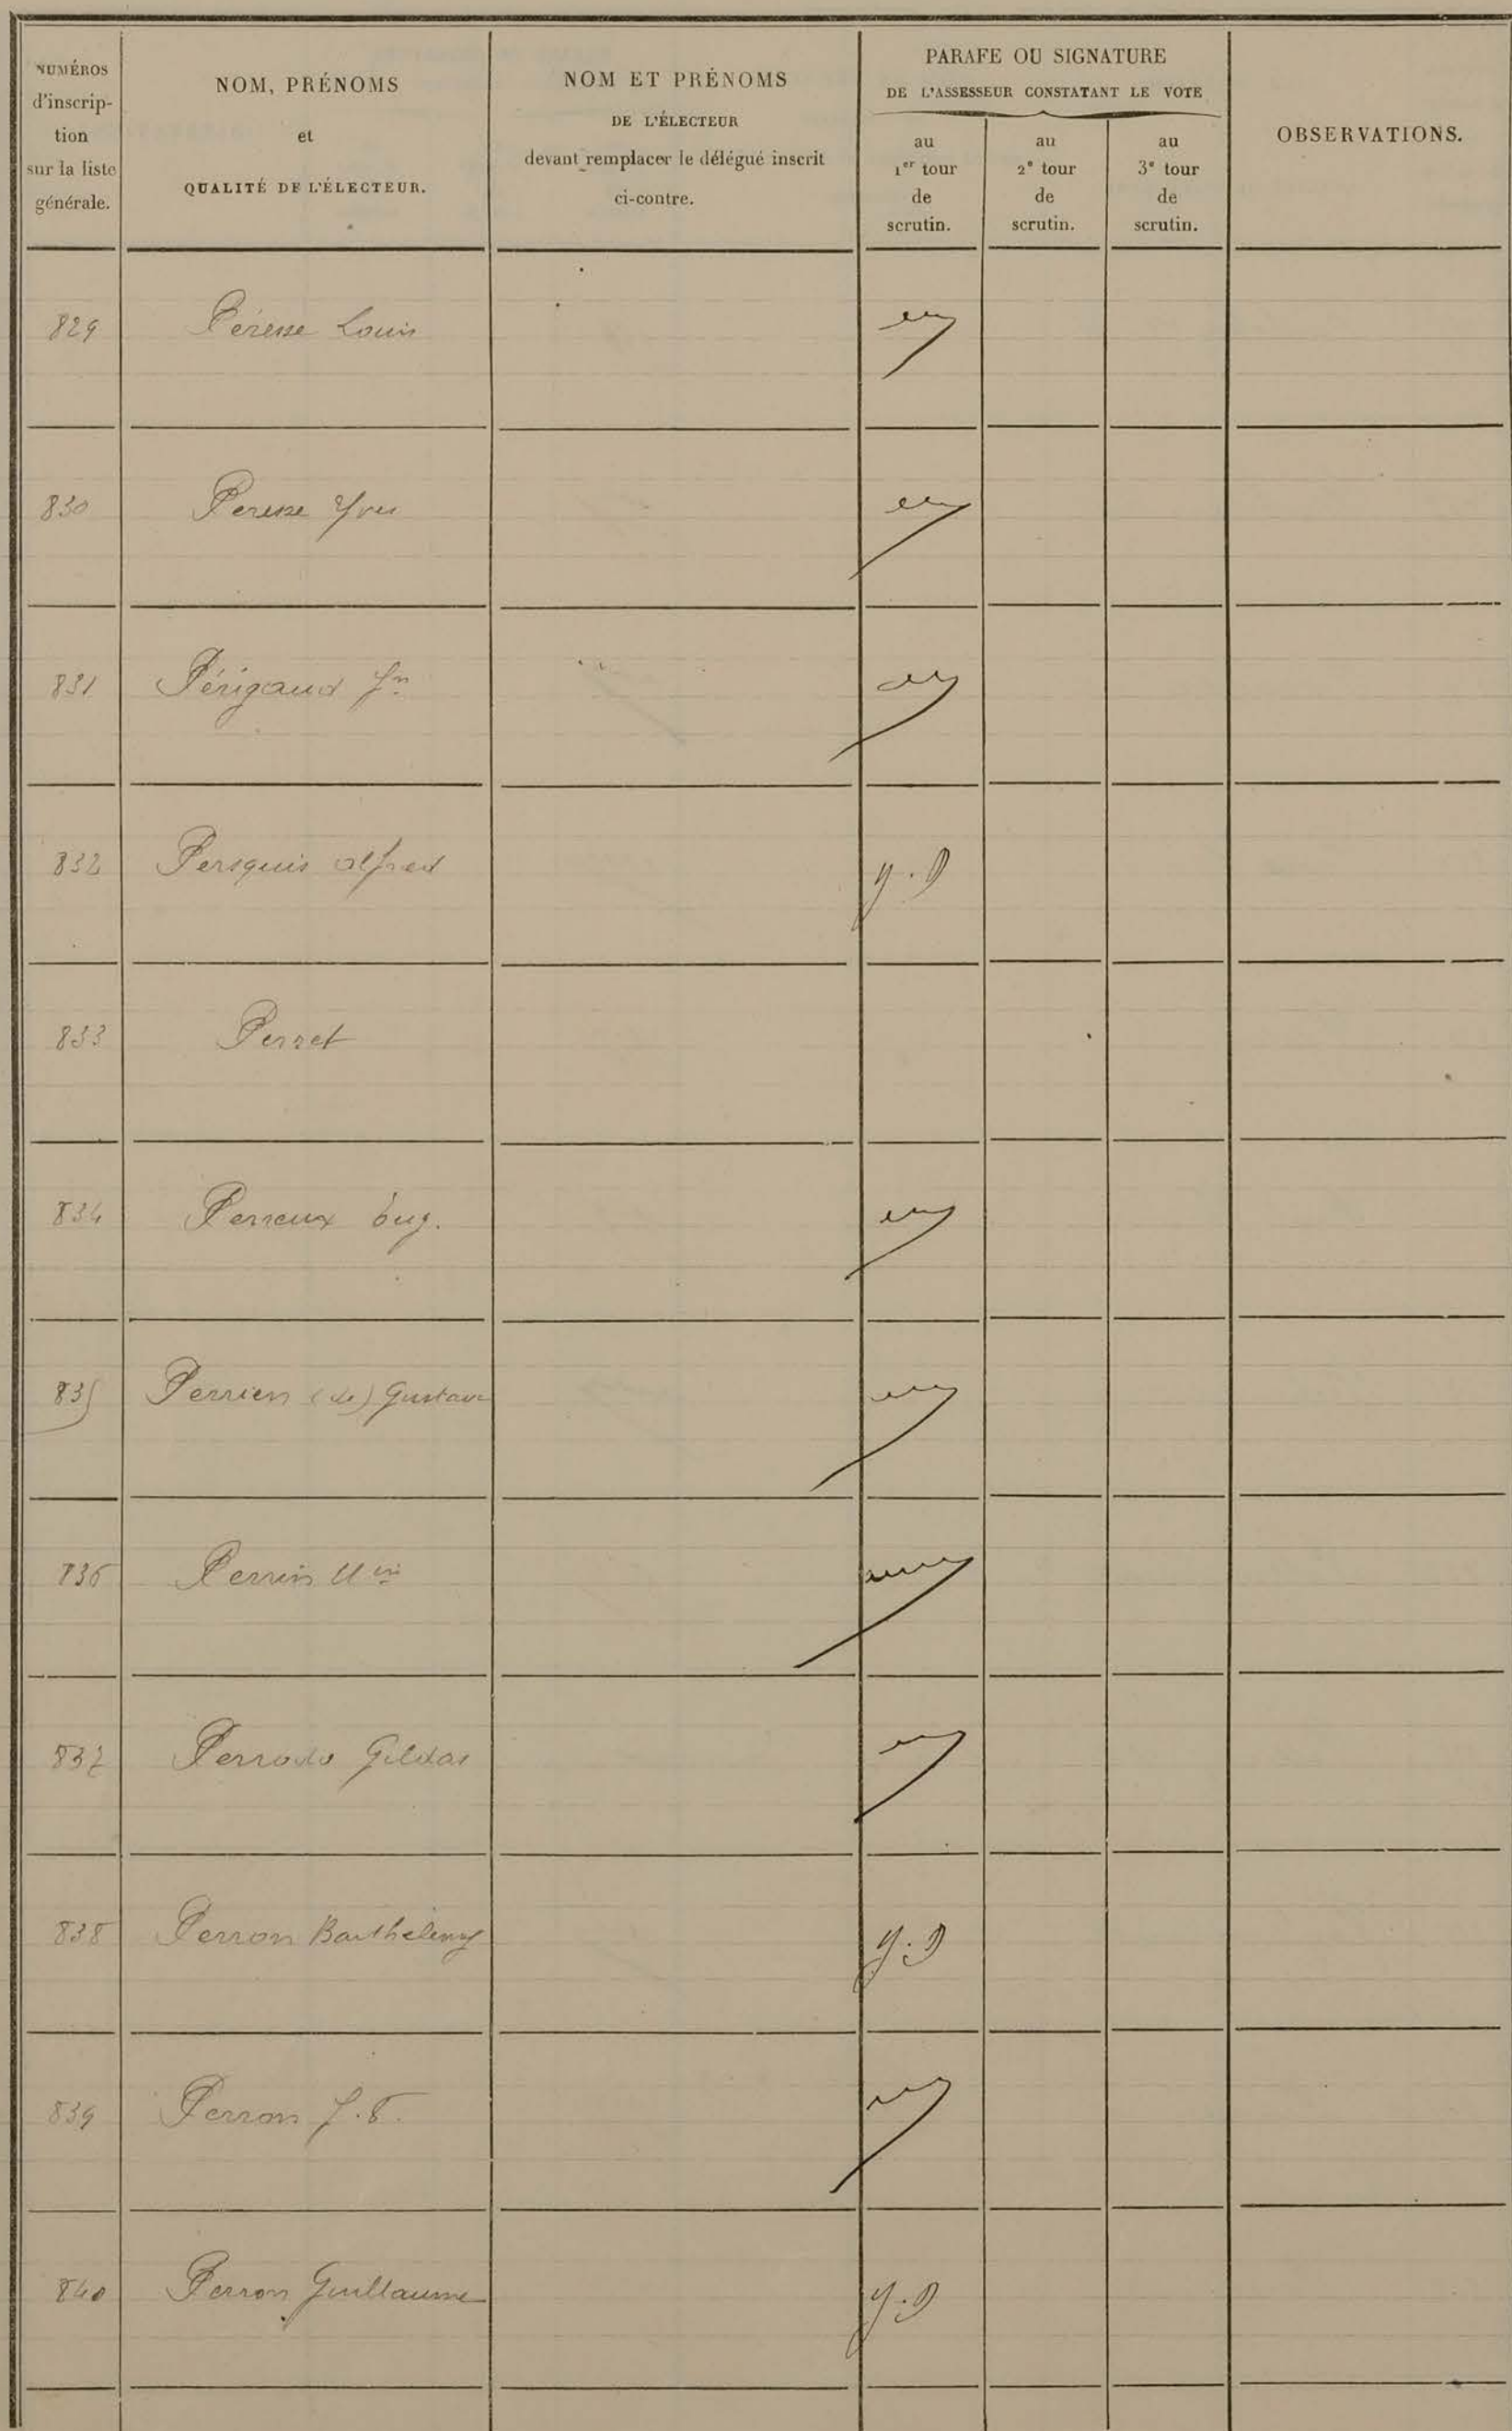 NUMÉROS
d'inscrip-
tion
sur la liste
générale.
NOM, PRÉNOMS
et
QUALITÉ DE L'ÉLECTEUR.
NOM ET PRÉNOMS
DE L'ÉLECTEUR
devant remplacer le délégué inscrit
ci-contre.
PARAFE OU SIGNATURE
DE L'ASSESSEUR CONSTATANT LE VOTE
au
1er tour
de
scrutin.
au
2e tour
de
scrutin.
au
3e tour
de
scrutin.
OBSERVATIONS.
829 Péresse Louis
830 Peresse Yves
831 Périgaud Jn
832 Persquis Alfred
833 Perret
834 Perreux Eug.
835 Perrien (de) Gustave
836 Perrin
837 Perrodo Gildas
838 Perron Barthélemy
839 Perron J.
840 Perron Guillaume